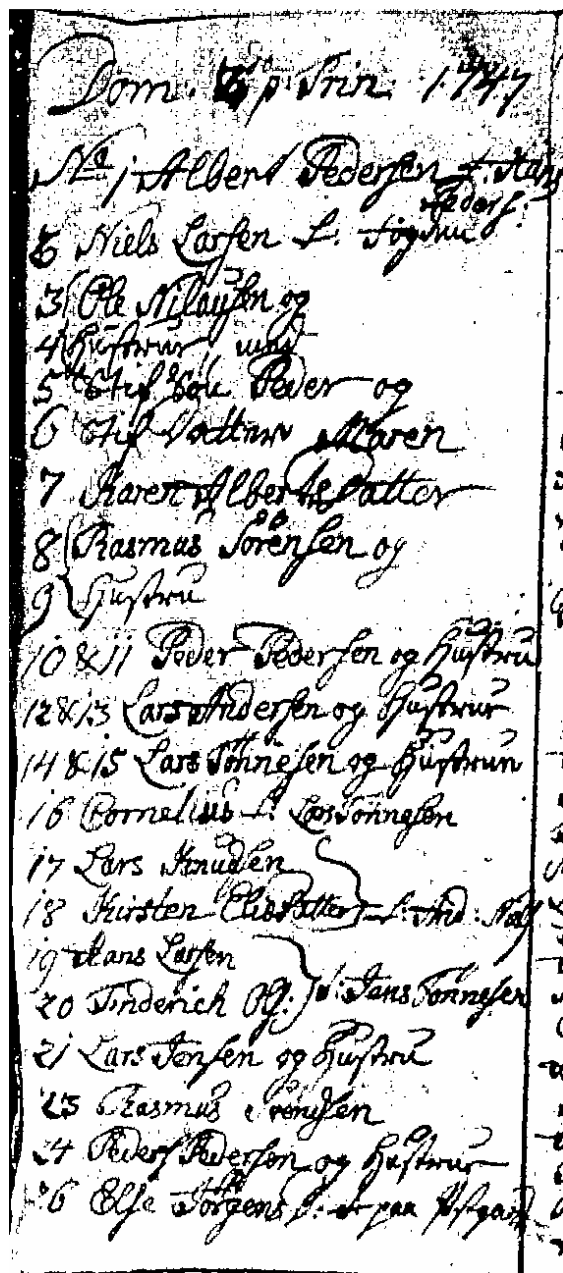 Dom. p. Trin. 1747
No. 1 Albert Pedersen t. Hans
Peders:
2 Niels Larsen t.
3 Ole Nilausen og
4 Hustrue
5 Stif Søn Peder og
6 Stif Datter Maren
7 Karen Alberts Datter
8 Rasmus Sörensen og
9 Hustru
10 & 11 Peder Pedersen og Hustru
12 & 13 Lars Andersen og Hustrue
14 & 15 Lars Tönnesen og Hustrue
16 Cornelius t. Lars Tönnesen
17 Lars Knudsen
18 Kirsten t. And:
19 Hans Larsen
20 t. Jans Tönnesen
21 Lars Jensen og Hustru
23 Rasmus Svendsen
24 Peder Pedersen og Hustrue
26 Else Jörgens D: t paa